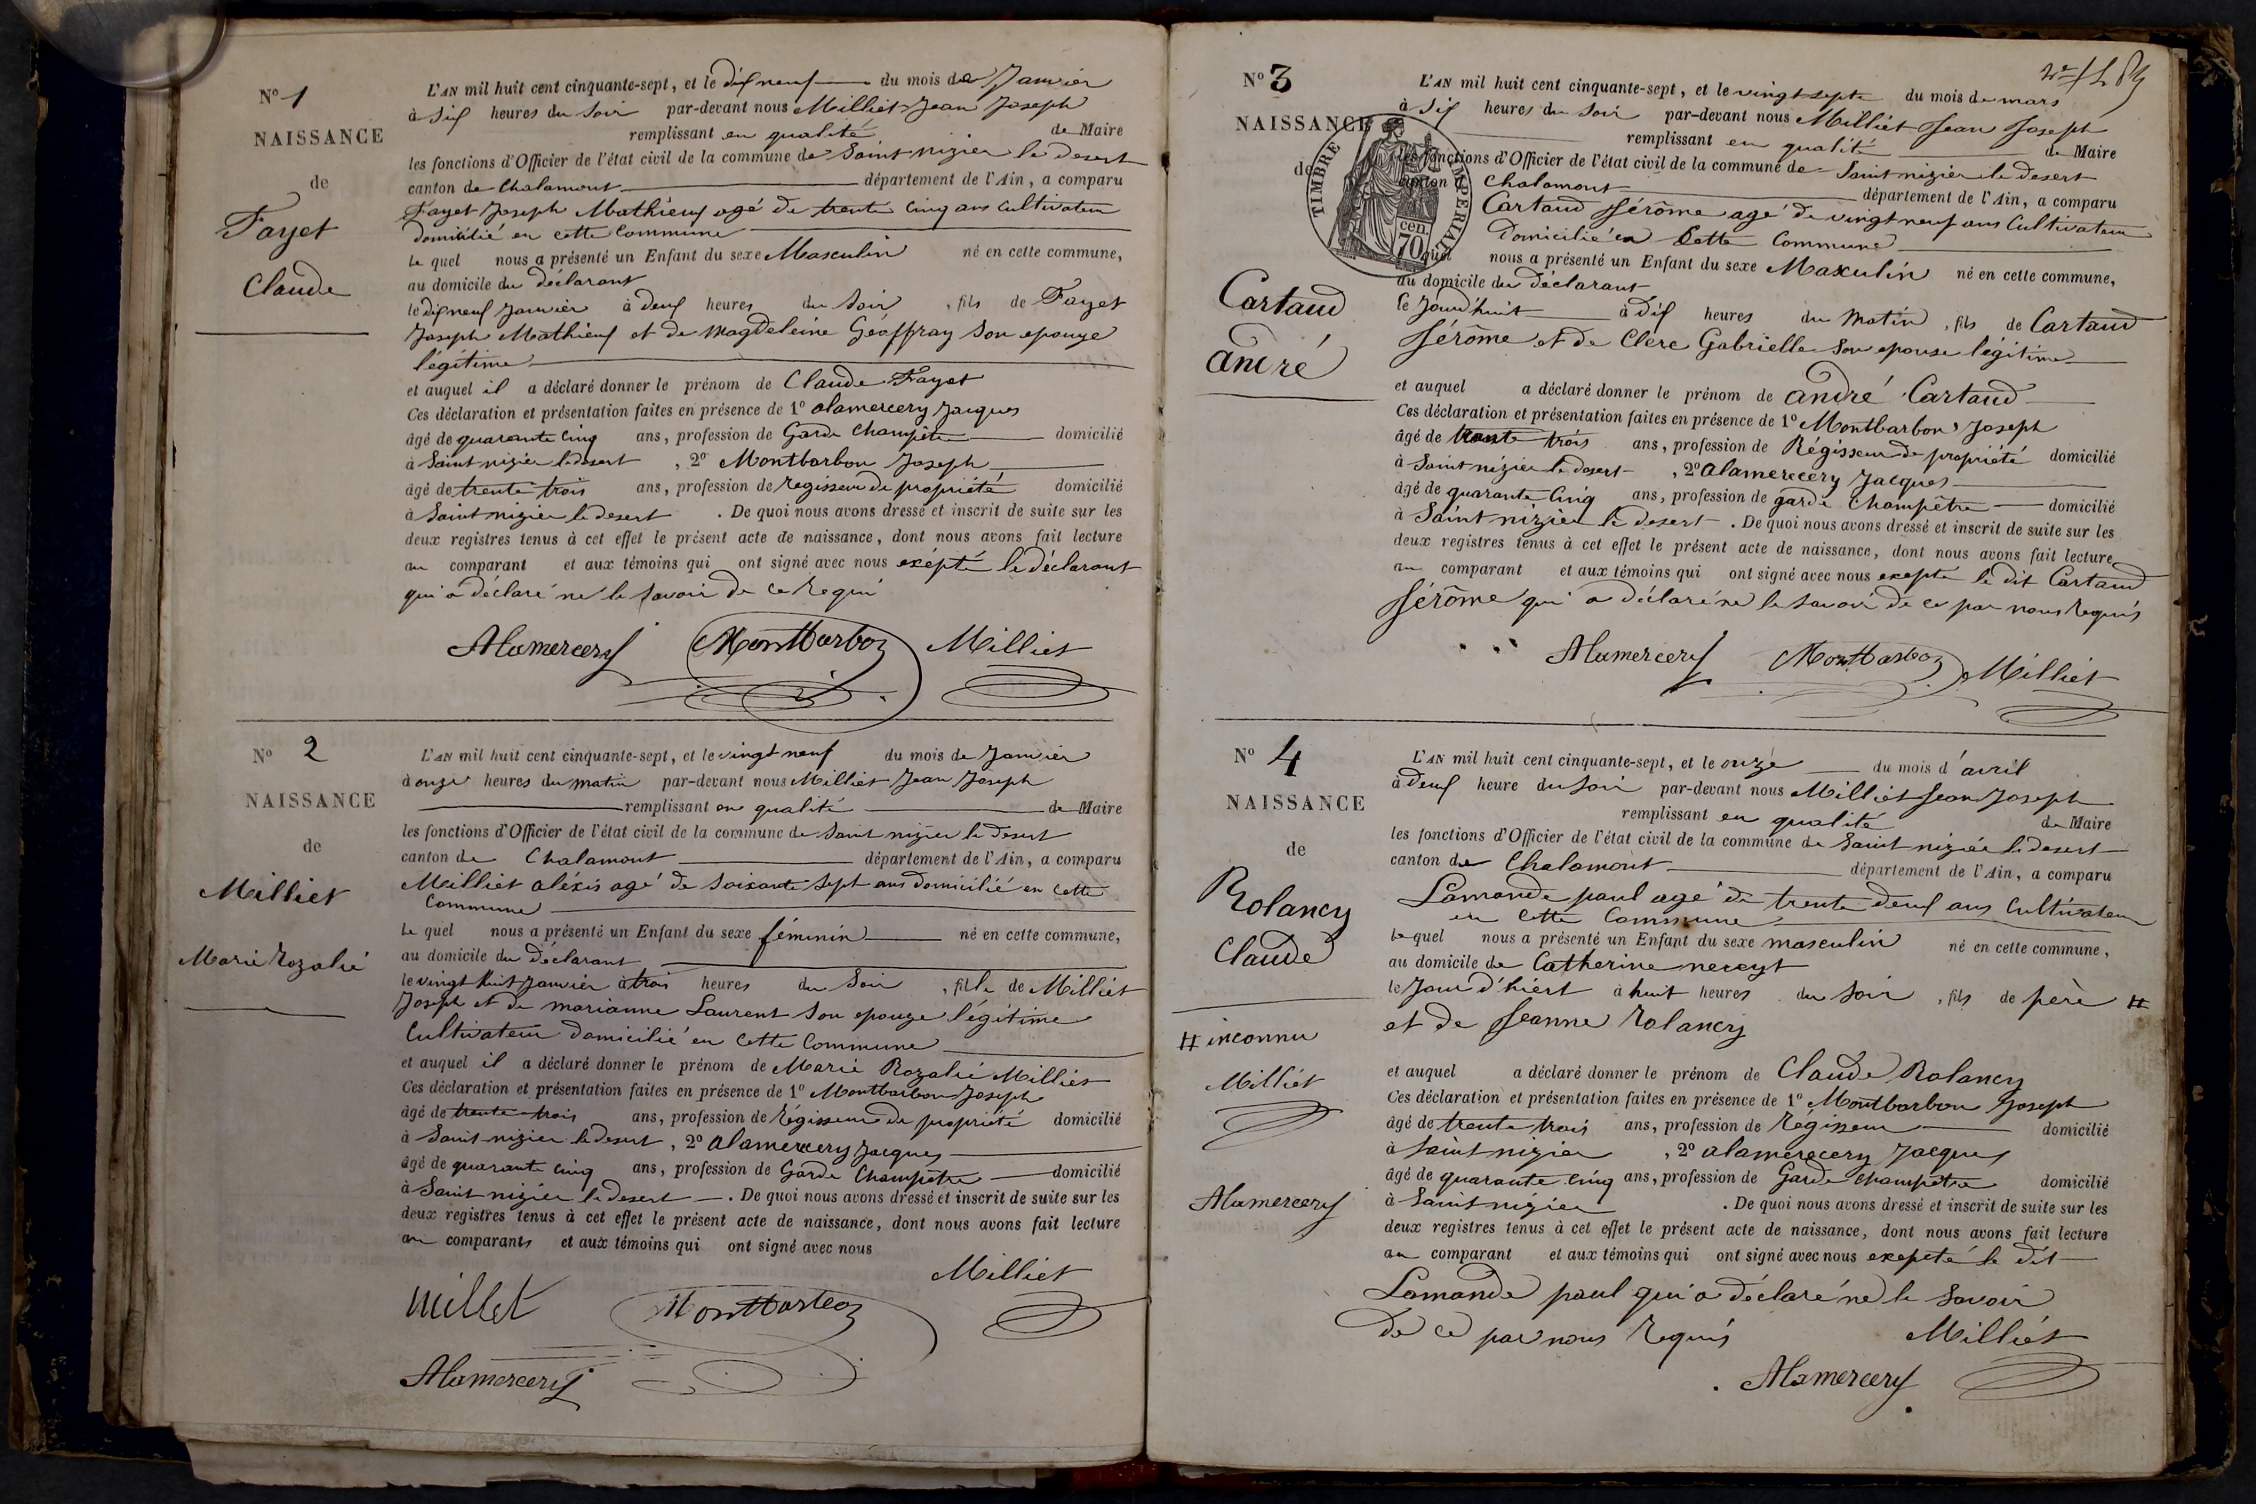 N° 1
NAISSANCE
de
Fayet
Claude
L'AN mil huit cent cinquante-sept, et le dix neuf du mois de Janvier
à Six heures du Soir par-devant nous Milliet Jean Joseph
remplissant en qualité de Maire
les fonctions d'Officier de l'état civil de la commune de Saint nizier le desert
canton de Chalamont département de l'Ain, a comparu
Fayet Joseph Mathieux agé de trente cinq ans cultivateur
domicilié en cette Commune
le quel nous a présenté un Enfant du sexe Masculin né en cette commune,
au domicile du déclarant
le dix neuf Janvier à deux heures du Soir, fils de Fayet
Joseph Mathieux et de Magdeleine Géoffray Son epouze
légitime
et auquel il a déclaré donner le prénom de Claude Fayet
Ces déclaration et présentation faites en présence de 1° alamercery Jacques
âgé de quarante Cinq ans, profession de Garde Champêtre domicilié
à Saint nizier le desert, 2° Montbarbon Joseph
âgé de trente trois ans, profession de regisseur de propriété domicilié
à Saint nizier le desert. De quoi nous avons dressé et inscrit de suite sur les
deux registres tenus à cet effet le présent acte de naissance, dont nous avons fait lecture
au comparant et aux témoins qui ont signé avec nous exépté le déclarant
qui a déclaré ne le Savoir de ce Requi
Alamercery Montbarbon Milliet
N° 2
NAISSANCE
de
Milliet
Marie Rozalie
L'AN mil huit cent cinquante-sept, et le vingt neuf du mois de Janvier
à onze heures du matin par-devant nous Milliet Jean Joseph
remplissant en qualité de Maire
les fonctions d'Officier de l'état civil de la commune de Saint nizier le desert
canton de Chalamont département de l'Ain, a comparu
Milliet aléxis agé de soixante Sept ans domicilié en cette
Commune
le quel nous a présenté un Enfant du sexe féminin né en cette commune,
au domicile du déclarant
le vingt huit Janvier à trois heures du Soir, fille de Milliet
Joseph et de marianne Laurent Son epouze légitime
Cultivateur domicilié en Cette Commune
et auquel il a déclaré donner le prénom de Marie Rozalie Milliet
Ces déclaration et présentation faites en présence de 1° Montbarbon Joseph
âgé de trente trois ans, profession de Régisseur de propriété domicilié
à Saint nizier le desert, 2° alamercery Jacques
âgé de quarante cinq ans, profession de Garde Champetre domicilié
à Saint nizier le desert. De quoi nous avons dressé et inscrit de suite sur les
deux registres tenus à cet effet le présent acte de naissance, dont nous avons fait lecture
au comparants et aux témoins qui ont signé avec nous
Milliet
Millet Montbarbon
Alamercery
N° 3
NAISSANCE
de
TIMBRE IMPERIAL
70 cen.
Cartaud
andré
L'AN mil huit cent cinquante-sept, et le vingt sept du mois de mars
à Six heures du Soir par-devant nous Milliet Jean Joseph
remplissant en qualité de Maire
les fonctions d'Officier de l'état civil de la commune de Saint nizier le desert
canton de Chalamont département de l'Ain, a comparu
Cartaud Jérôme agé de vingt neuf ans Cultivateur
Domicilié en Cette Commune
le quel nous a présenté un Enfant du sexe Masculin né en cette commune,
au domicile du déclarant
le Jourd'huit à dix heures du Matin, fils de Cartaud
Jérôme et de Clere Gabrielle Son epouse légitime
et auquel a déclaré donner le prénom de andré Cartaud
Ces déclaration et présentation faites en présence de 1° Montbarbon Joseph
âgé de trente trois ans, profession de Régisseur de propriété domicilié
à Saint nizier le desert, 2° alamercery Jacques
âgé de quarante Cinq ans, profession de garde Champêtre domicilié
à Saint nizier le desert. De quoi nous avons dressé et inscrit de suite sur les
deux registres tenus à cet effet le présent acte de naissance, dont nous avons fait lecture
au comparant et aux témoins qui ont signé avec nous exepté le dit Cartaud
Jérôme qui a déclaré ne le Savoir de ce par nous Requis
Alamercery Montbarbon Milliet
N° 4
NAISSANCE
de
Rolancy
Claude
# inconnu
Milliet
Alamercery
L'AN mil huit cent cinquante-sept, et le onze du mois d'avril
à deux heure du Soir par-devant nous Milliet Jean Joseph
remplissant en qualité de Maire
les fonctions d'Officier de l'état civil de la commune de Saint nizier le desert
canton de Chalamont département de l'Ain, a comparu
Lamande paul agé de trente deux ans Cultivateur
en Cette Commune
le quel nous a présenté un Enfant du sexe masculin né en cette commune,
au domicile de Catherine
le Jour d'hiert à huit heures du Soir, fils de père #
et de Jeanne Rolancy
et auquel a déclaré donner le prénom de Claude Rolancy
Ces déclaration et présentation faites en présence de 1° Montbarbon Joseph
âgé de trente trois ans, profession de Régisseur domicilié
à Saint nizier, 2° alamercery Jacques
âgé de quarante cinq ans, profession de Garde champêtre domicilié
à Saint nizier. De quoi nous avons dressé et inscrit de suite sur les
deux registres tenus à cet effet le présent acte de naissance, dont nous avons fait lecture
au comparant et aux témoins qui ont signé avec nous exepté le dit
Lamande paul qui a déclaré ne le Savoir
de ce par nous Requis Milliet
Alamercery